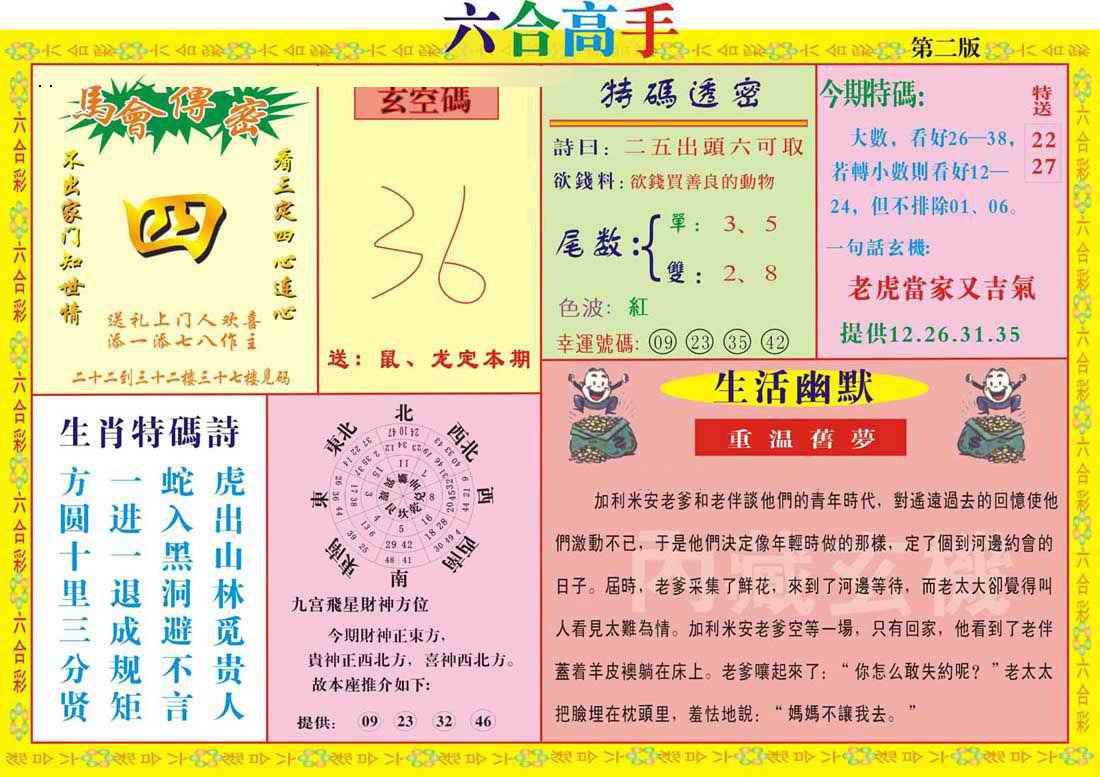 六合高手
第二版
馬會傳密
不出家门知世情
四
看三定四心连心
送礼上门人欢喜
添一添七八作主
二十二到三十二楼三十七楼见码
玄空碼
36
送：鼠、龙定本期
特碼透密
詩曰：二五出頭六可取
欲錢料：欲錢買善良的動物
尾数：
單：3、5
雙：2、8
色波：紅
幸運號碼：09 23 35 42
今期特碼:
特送
22
27
大數，看好26—38，
若轉小數則看好12—
24，但不排除01、06。
一句話玄機:
老虎當家又吉氣
提供12.26.31.35
生肖特碼詩
虎出山林觅贵人
蛇入黑洞避不言
一进一退成规矩
方圆十里三分贤
北
東北
西北
東
西
東南
西南
南
九宫飛星財神方位
今期財神正東方，
貴神正西北方，喜神西北方。
故本座推介如下:
提供: 09 23 32 46
生活幽默
重温舊夢
加利米安老爹和老伴談他們的青年時代，對遙遠過去的回憶使他
們激動不已，于是他們決定像年輕時做的那樣，定了個到河邊約會的
日子。屆時，老爹采集了鮮花，來到了河邊等待，而老太大卻覺得叫
人看見太難為情。加利米安老爹空等一場，只有回家，他看到了老伴
蓋着羊皮襖躺在床上。老爹嚷起來了：“你怎么敢失約呢？”老太太
把臉埋在枕頭里，羞怯地說：“媽媽不讓我去。”
内藏玄機